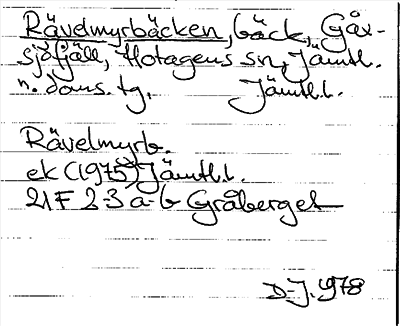 Rävelmyrbäcken, bäck, Gåx-
sjöfjäll, Hotagens sn, Jämtl.
n. doms. tg. Jämtl.l.
Rävelmyrb.
ek (1975) Jämtl.l.
21F 2-3 a-b Gråberget
DJ. 1978